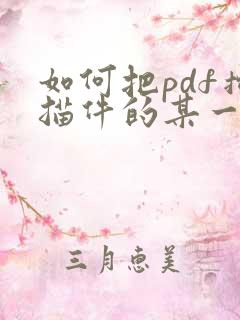 如何把pdf扫
描件的某一
三月惠美